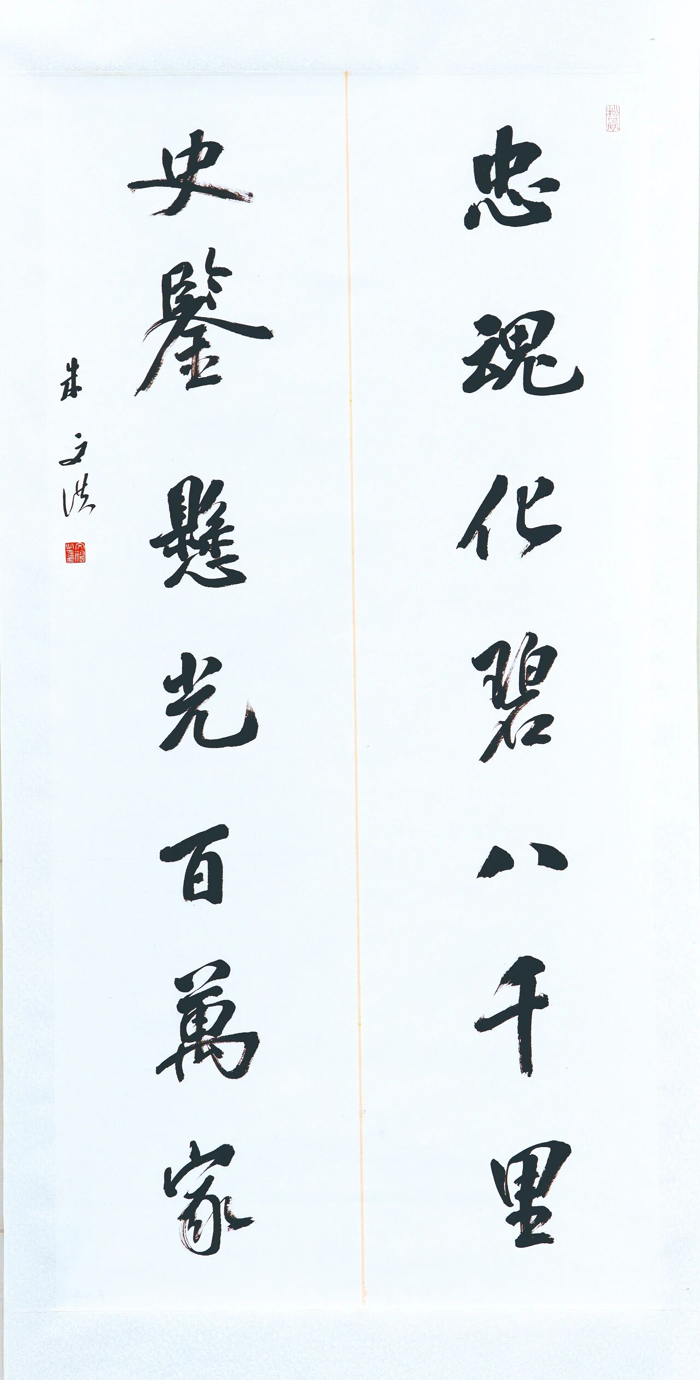 忠魂化碧八千里
史鑒懸光百萬家
朱文洪